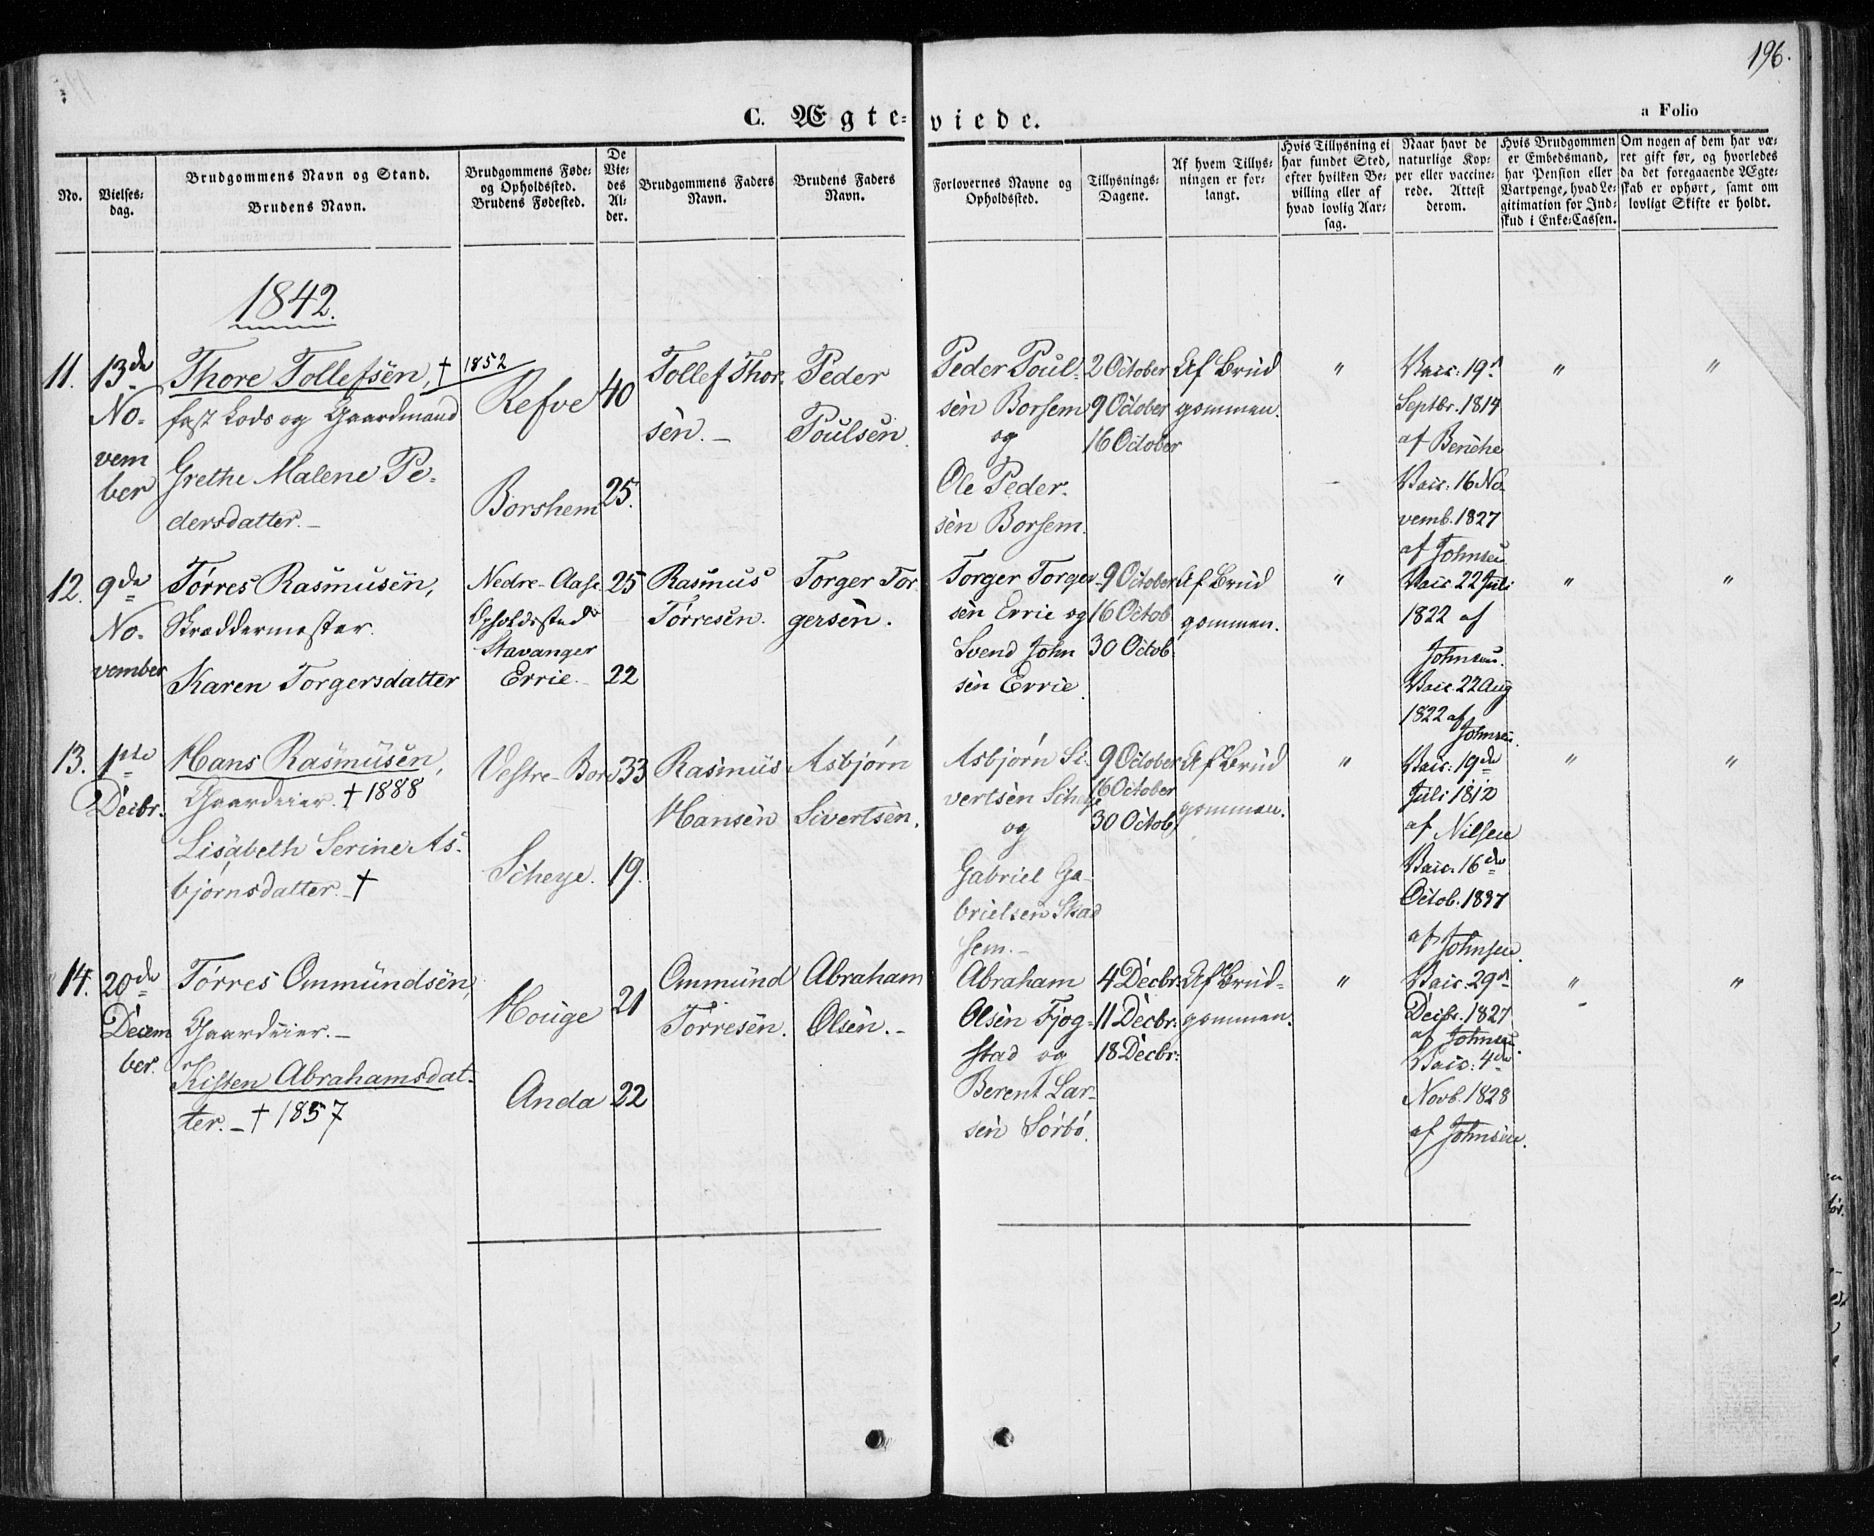 196.
C. Ægte-viede.
a Folio
No.
Vielses-
dag.
Brudgommens Navn og Stand.
Brudens Navn.
Brudgommens Føde-
og Opholdssted.
Brudens Fødested.
De
Vie-
des
Al-
der.
Brudgommens Faders
Navn.
Brudens Faders
Navn.
Forlovernes Navne og
Opholdssted.
Tillysnings-
Dagene.
Af hvem Tillys-
ningen er for-
langt.
Hvis Tillysning ei
har fundet Sted,
efter hvilken Be-
villing eller af
hvad lovlig Aar-
sag.
Naar havt de
naturlige Kop-
per eller vaccine-
rede. Attest
derom.
Hvis Brudgommen
er Embedsmand,
har Pension eller
Vartpenge, hvad Le-
gitimation for Ind-
skud i Enke-Cassen.
Om nogen af dem har væ-
ret gift før, og hvorledes
da det foregaaende Ægte-
skab er ophørt, samt om
lovligt Skifte er holdt.
1842.
11.
13de
No-
vem
ber
Thore Tollefsen, † 1852
fast Lods og Gaardmand
Grethe Malene Pe-
dersdatter.-
Refve
Borshem
40
25.
Tollef Thor-
sen.-
Peder
Poulsen.
Peder Poul-
sen Borsem
og
Ole Peder-
sen Borsem.
2 October
9 October
16 October
Af Brud
gommen.
"
-
Vacc: 19d
Septbr. 1814
af
Vacc: 16 No-
vemb. 1827
af Johnsen
"
"
12.
9de
No-
vember
Tørres Rasmusen,
Skræddermester.
Karen Torgersdatter
Nedre-Aase
Opholdssted
Stavanger
Errie.-
25
22
Rasmus
Tørresen.
Torger Tor-
gersen.
Torger Torger-
sen Errie og
Svend John
sen Errie.
9 October
16 Octob
30 Octob
Af Brud
gommen.
"
Vacc. 22 Juli
1822 af
Johnsen.
Vacc. 22 Aug
1822 af
Johnsen.
"
"
13.
1ste
Decbr.
Hans Rasmusen,
Gaardeier. † 1888
Lisabeth Serine As-
bjørnsdatter.- †
Vestre-Bore
Scheye.
33
19.
Rasmus
Hansen
Asbjørn
Sivertsen.
Asbjørn Si-
vertsen Scheye
og
Gabriel Ga-
brielsen Skad
sem.-
9 October
16 October
30 Octob.
Af Brud
gommen.
"
Vacc: 19de
Juli 1812
af Nilsen
Vacc. 16de
Octob. 1837
af Johnsen.
"
"
14.
20de
Decem
ber.
Tørres Ommundsen,
Gaardeier.-
Kisten Abrahamsdat-
ter.- † 1857
Houge
Anda
21
22
Ommund
Torresen.
Abraham
Olsen.-
Abraham
Olsen Fjog-
stad og
Berent Lar-
sen Sørbø.
4 Decbr:
11 Decbr:
18 Decbr:
Af Brud-
gommen.
"
Vacc. 29d
Decbr. 1827
af Johnsen.
Vacc: 4de
Novb. 1828
af Johnsen.
"
"